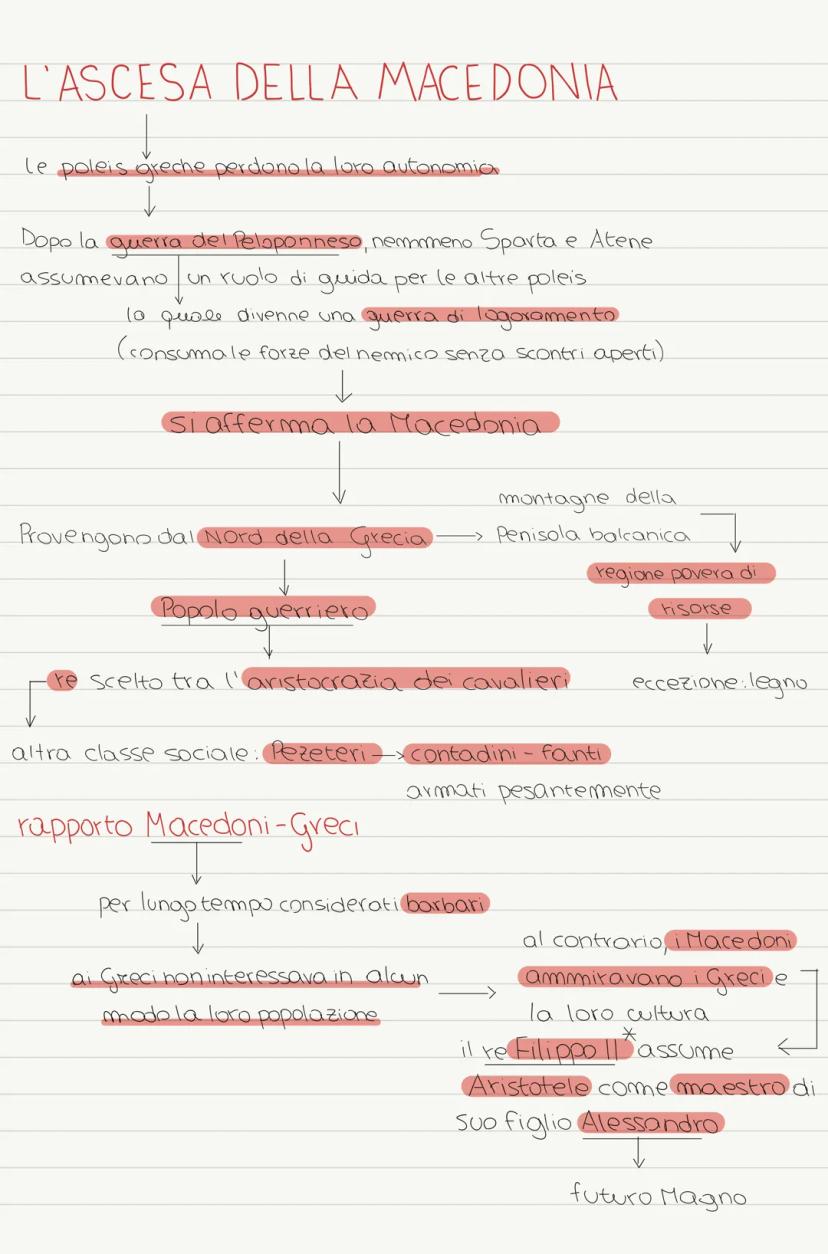 L'ASCESA DELLA MACEDONIA
le poleis greche perdono la loro autonomia
Dopo la guerra del Peloponneso, nemmeno Sparta e Atene
assumevano un ruolo di guida per le altre poleis
la quale divenne una guerra di logoramento
(consuma le forze del nemico senza scontri aperti)
si afferma la Macedonia
montagne della
Provengono dal Nord della Grecia → Penisola balcanica
regione povera di
Popolo guerriero
risorse
re scelto tra l'aristocrazia dei cavalieri
eccezione: legno
altra classe sociale: Pezeteri → contadini - fanti
armati pesantemente
rapporto Macedoni - Greci
per lungo tempo considerati barbari
ai Greci non interessava in alcun
modo la loro popolazione
al contrario, i Macedoni
ammiravano i Greci e
la loro cultura
il re Filippo II* assume
Aristotele come maestro di
suo figlio Alessandro
futuro Magno